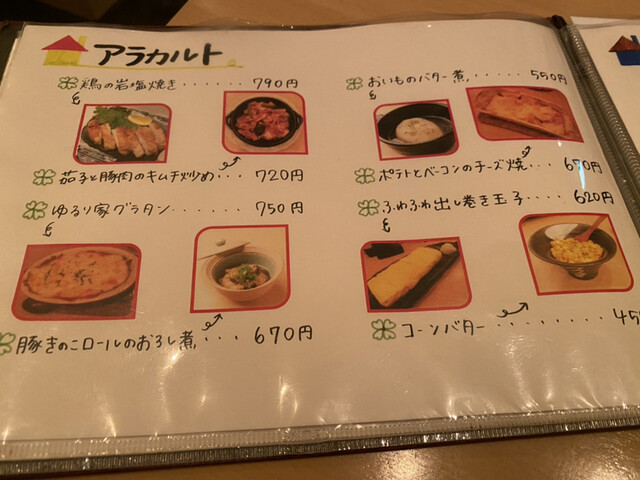 アラカルト
鶏の岩塩焼き・・・・・・・790円
茄子と豚肉のキムチ炒め・・・720円
ゆるり家グラタン・・・・・・・750円
豚きのこロールのおろし煮・・・・670円
おいものバター煮・・・・・・550円
ポテトとベーコンのチーズ焼・・・670円
ふわふわ出し巻き玉子・・・・620円
コーンバター・・・・・・・・